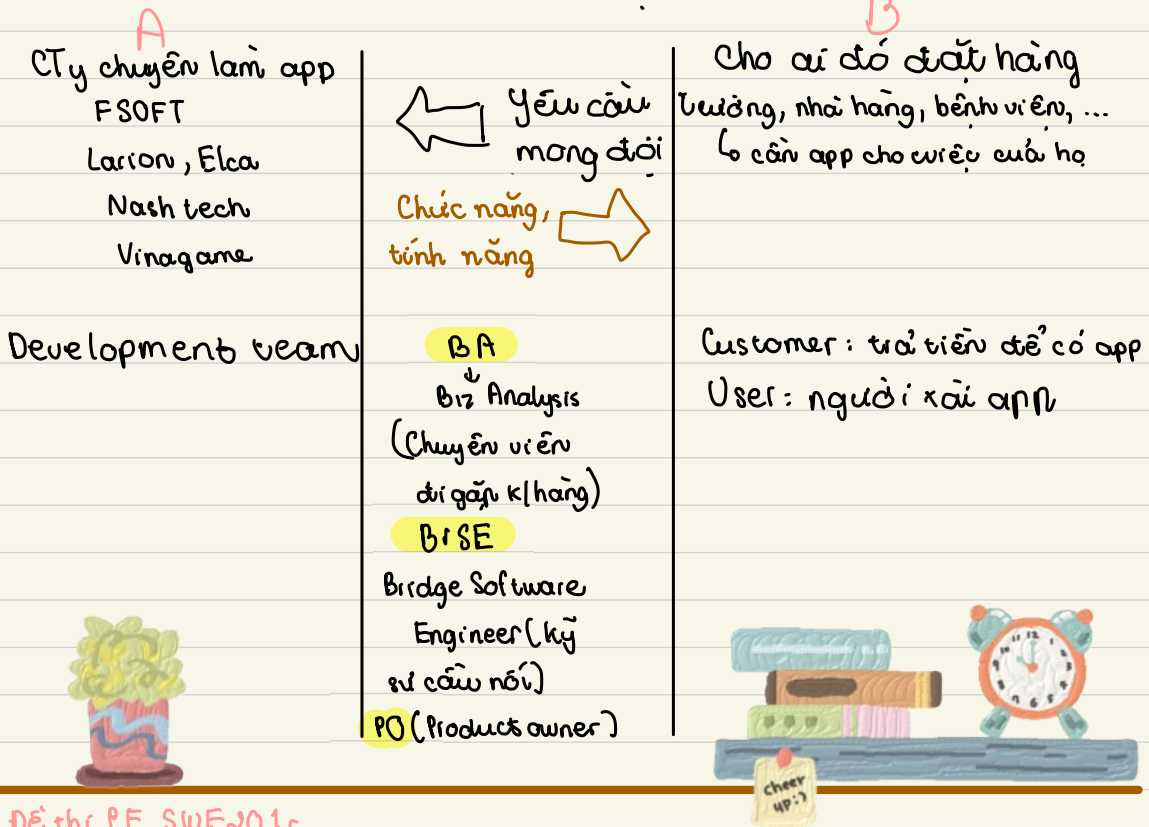 A
CTy chuyên làm app
FSOFT
Larion, Elca
Nash tech
Vinagame
Development team
Yêu cầu
mong đợi
Chức năng,
tính năng
BA
Biz Analysis
(Chuyên viên
đi gặp k/hàng)
BrSE
Bridge Software
Engineer (kỹ
sư cầu nối)
PO (Product owner)
B
Cho ai đó đặt hàng
trường, nhà hàng, bệnh viện, ...
cần app cho việc của họ
Customer: trả tiền để có app
User: người xài app
cheer
up:)
Đề thi PE SWE201c